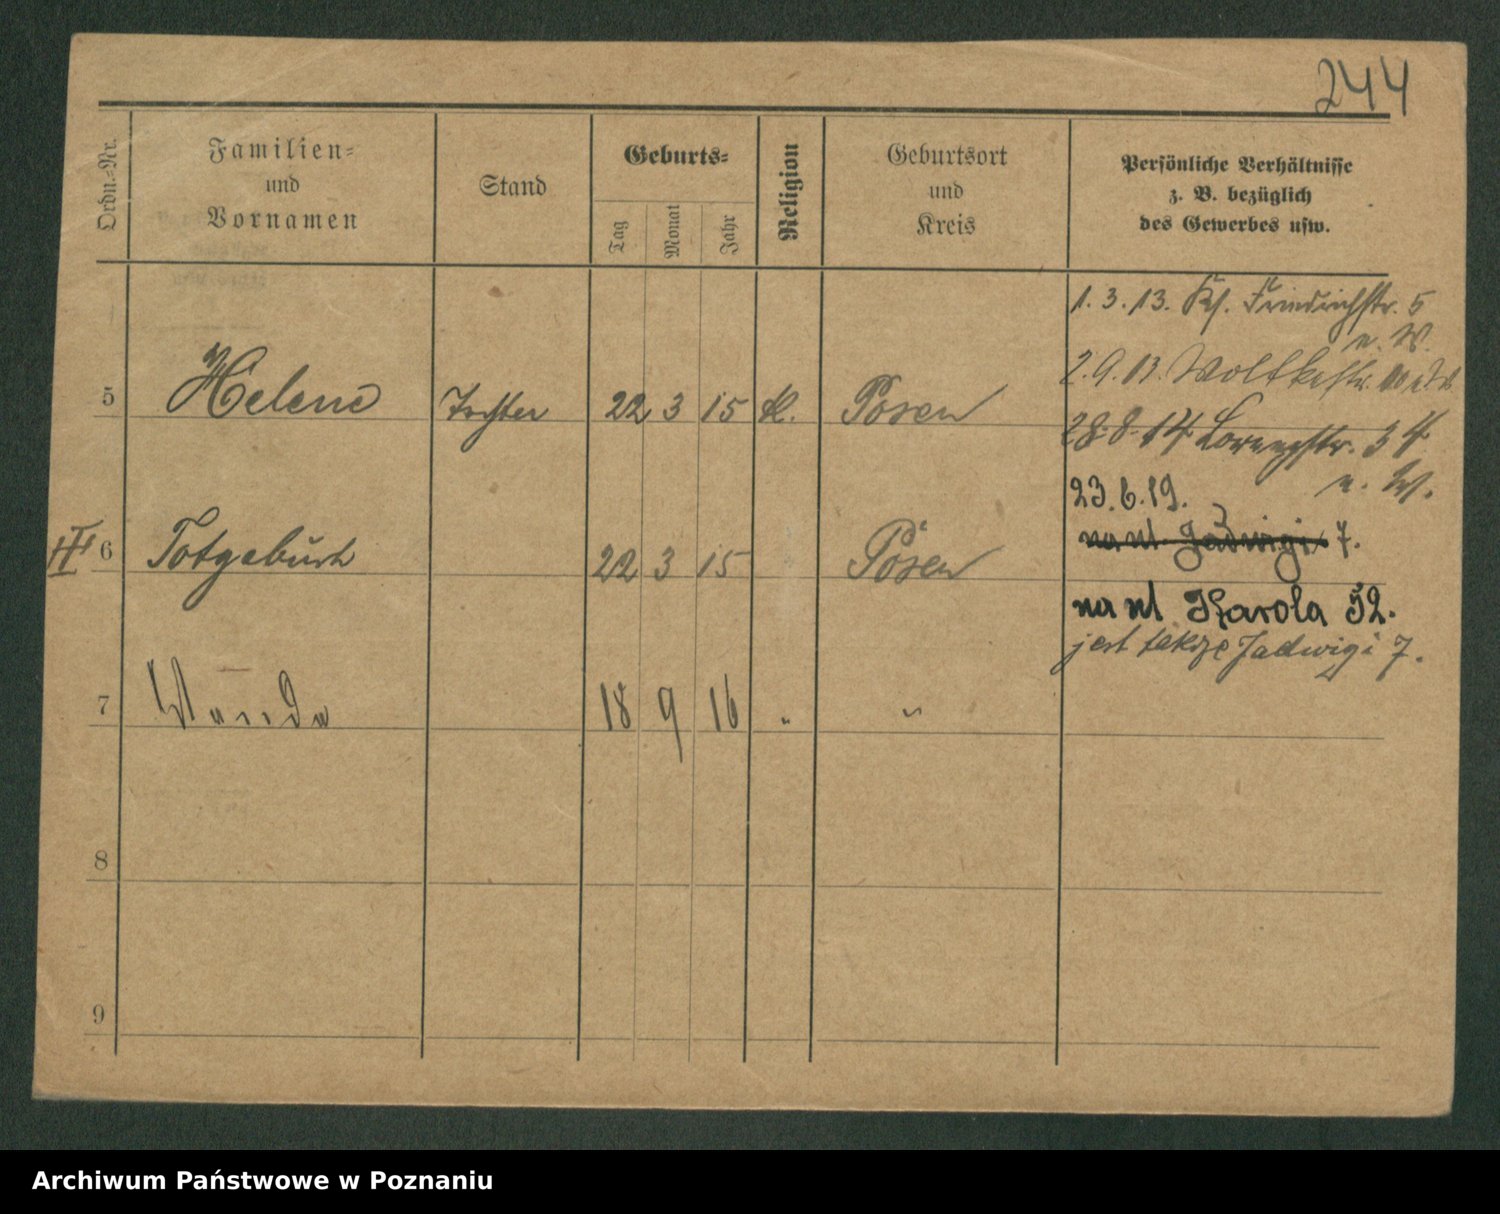 244
Ordn.-Nr.
Familien-
und
Vornamen
Stand
Geburts-
Tag
Monat
Jahr
Religion
Geburtsort
und
Kreis
Persönliche Verhältnisse
z. B. bezüglich
des Gewerbes usw.
1.3.13. Kl. Friedrichstr. 5
n. W.
2.9.13. Moltkestr.
5 Helene Tochter 22 3 15 k. Posen
28.8.14 34
n. W.
23.6.19.
III 6 Totgeburt 22 3 15 Posen
na ul. Jadwigi 7.
na ul Karola 52.
jest także Jadwigi 7.
7 Wanda 18 9 16 " "
8
9
Archiwum Państwowe w Poznaniu